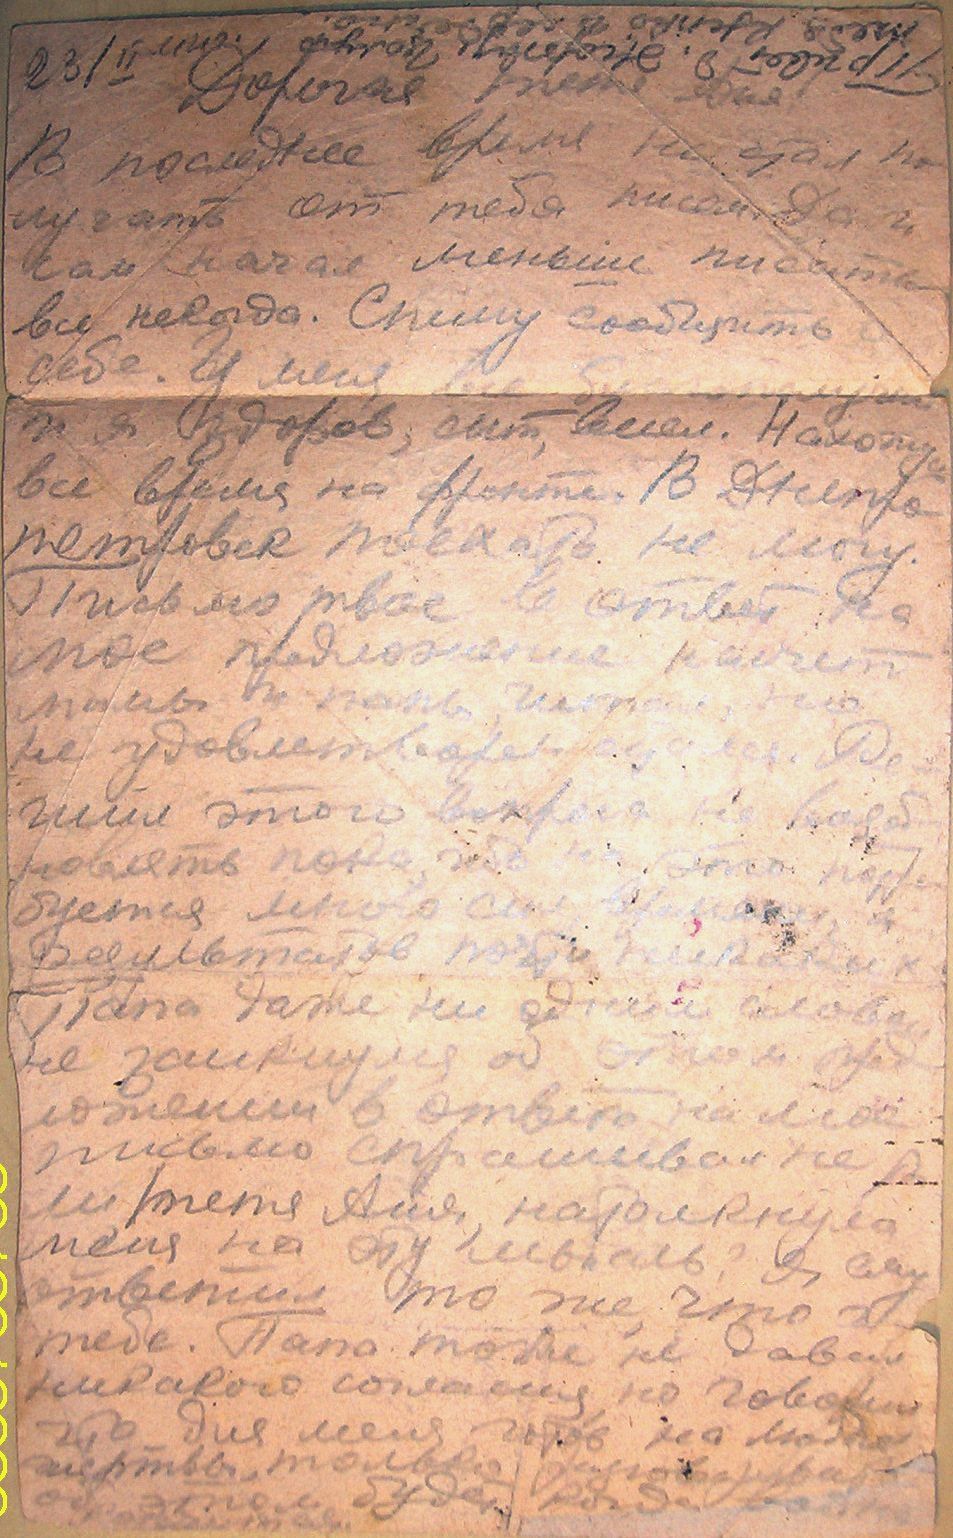 23/II
Привет
Дорогая тетя Аня
В последнее время не стал по
лучать от тебя писем. Да и
сам начал меньше писать
все некогда. Спешу сообщить о
себе. У меня все благополучно
и я здоров, сыт, весел. Нахожусь
все время на фронте. В Днепро
петровск поехать не могу.
Письмо твое в ответ на
мое предложение насчет
мамы и папы, читал, но
не удовлетворен остался. Ре-
шил этого вопроса не возоб
новлять пока, ибо на это потре
буется много сил, времени, а
результатов почти никаких
Папа даже ни одним словом
не заикнулся об этом пред
ложении в ответ на мое
письмо спрашивал не
ли тетя Аня, натолкнула
меня на эту мысль? Я ему
ответил то же, что и
тебе. Папа тоже не давал
никакого согласия, но говорил
что для меня готов на любые
жертвы, только
об этом будет когда